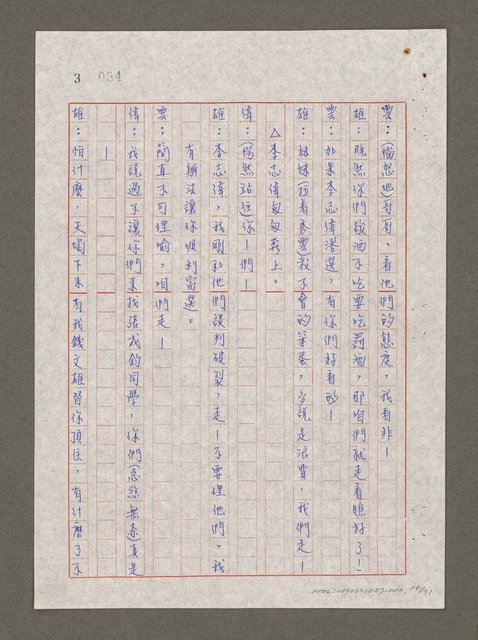 3 034
雲：(憤怒地)哥哥，看他們的態度，我看非！
雄：既然你們敬酒不吃要吃罰酒，那咱們就走着瞧好了！
雲：如果李志偉落選，有你們好看的！
雄：妹妹(拉着秀雲)教不會的笨蛋，多說是浪費，我們走！
△李志偉匆匆奔上。
偉：(愕然站住)你！們！
雄：李志偉，我剛和他們談判破裂，走！不要理他們，我
有辦法讓你順利當選。
雲：簡直不可理喻，咱們走！
偉：我說過不讓你們來找張成鈞同學，你們(忿然無奈)真是
！
雄：怕什麼，天塌下來有我錢文雄替你頂住，有什麼了不